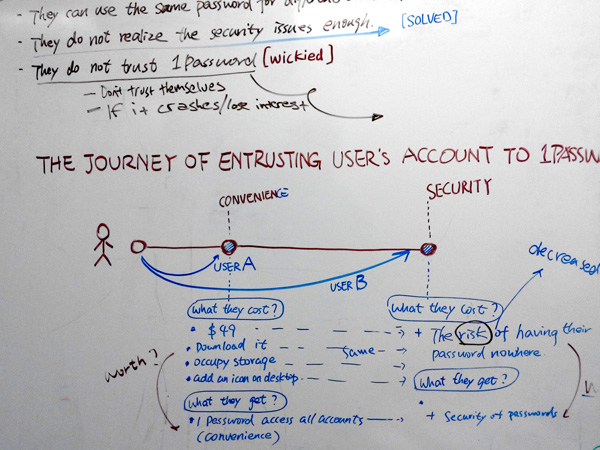 - They can use the same password for
- They do not realize the security issues enough. [SOLVED]
- They do not trust 1Password [wickied]
- Don't trust themselves
- If it crashes/lose interest
THE JOURNEY OF ENTRUSTING USER'S ACCOUNT TO 1PASSW
CONVENIENCE
SECURITY
USER A
USER B
decreased
what they cost?
• $49
• Download it
• occupy storage
• add an icon on desktop
same
worth?
what they get?
• 1 Password access all accounts
(convenience)
what they cost?
+ The risk of having their
password nowhere.
what they get?
+ security of passwords